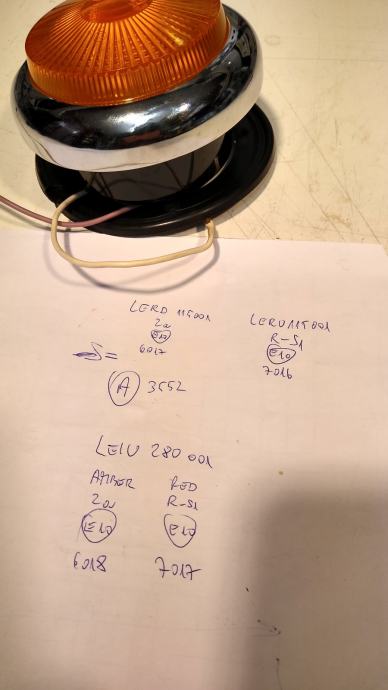 LERD 115001
20
E10
6017
LERU 115001
R-S1
E10
7016
S=
A 3552
LEIU 280 001
AMBER
20
E10
6018
RED
R-S1
E10
7017